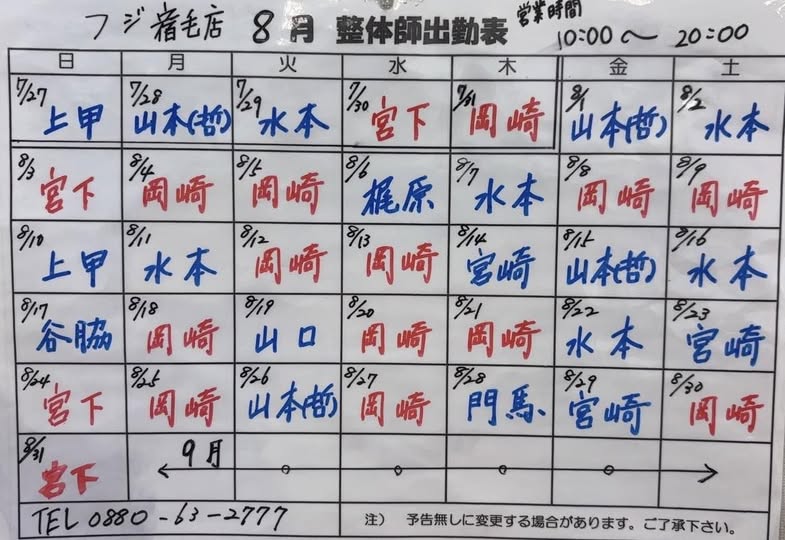 フジ宿毛店 8月 整体師出勤表 営業時間 10:00〜20:00
日 月 火 水 木 金 土
7/27 7/28 7/29 7/30 7/31 8/1 8/2
上甲 山本(哲) 水本 宮下 岡崎 山本(哲) 水本
8/3 8/4 8/5 8/6 8/7 8/8 8/9
宮下 岡崎 岡崎 梶原 水本 岡崎 岡崎
8/10 8/11 8/12 8/13 8/14 8/15 8/16
上甲 水本 岡崎 岡崎 宮崎 山本(哲) 水本
8/17 8/18 8/19 8/20 8/21 8/22 8/23
谷脇 岡崎 山口 岡崎 岡崎 水本 宮崎
8/24 8/25 8/26 8/27 8/28 8/29 8/30
宮下 岡崎 山本(哲) 岡崎 門馬 宮崎 岡崎
8/31 9月
宮下
TEL 0880-63-2777 注） 予告無しに変更する場合があります。ご了承下さい。